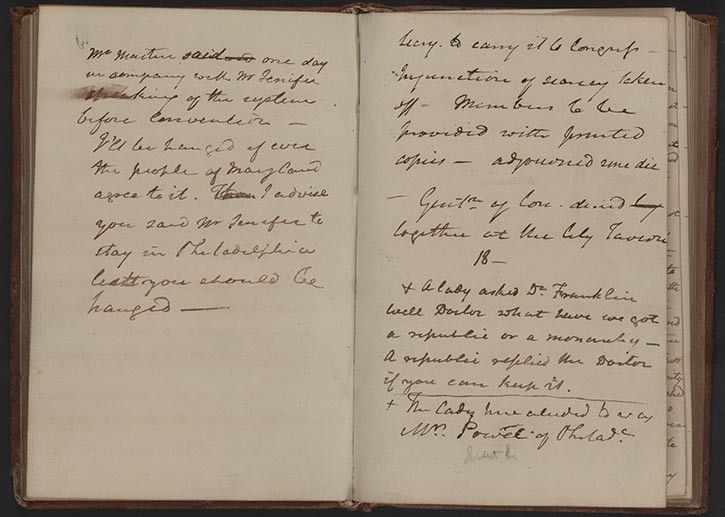 Mr Martin said one day
in company with Mr Jenifer
speaking of the system
before Convention —
I'll be hanged if ever
the people of Maryland
agree to it. I advise
you said Mr Jenifer to
stay in Philadelphia
lest you should be
hanged —
tecry. to carry it to Congress —
Injunction of secrecy taken
off — Members to be
provided with printed
copies — adjourned sine die
— Gentn. of Con. dined
together at the City Tavern
18 —
+ A lady asked Dr. Franklin
well Doctor what have we got
a republic or a monarchy —
A republic replied the Doctor
if you can keep it.
+ The Lady here aluded to was
Mrs. Powel of Philada.